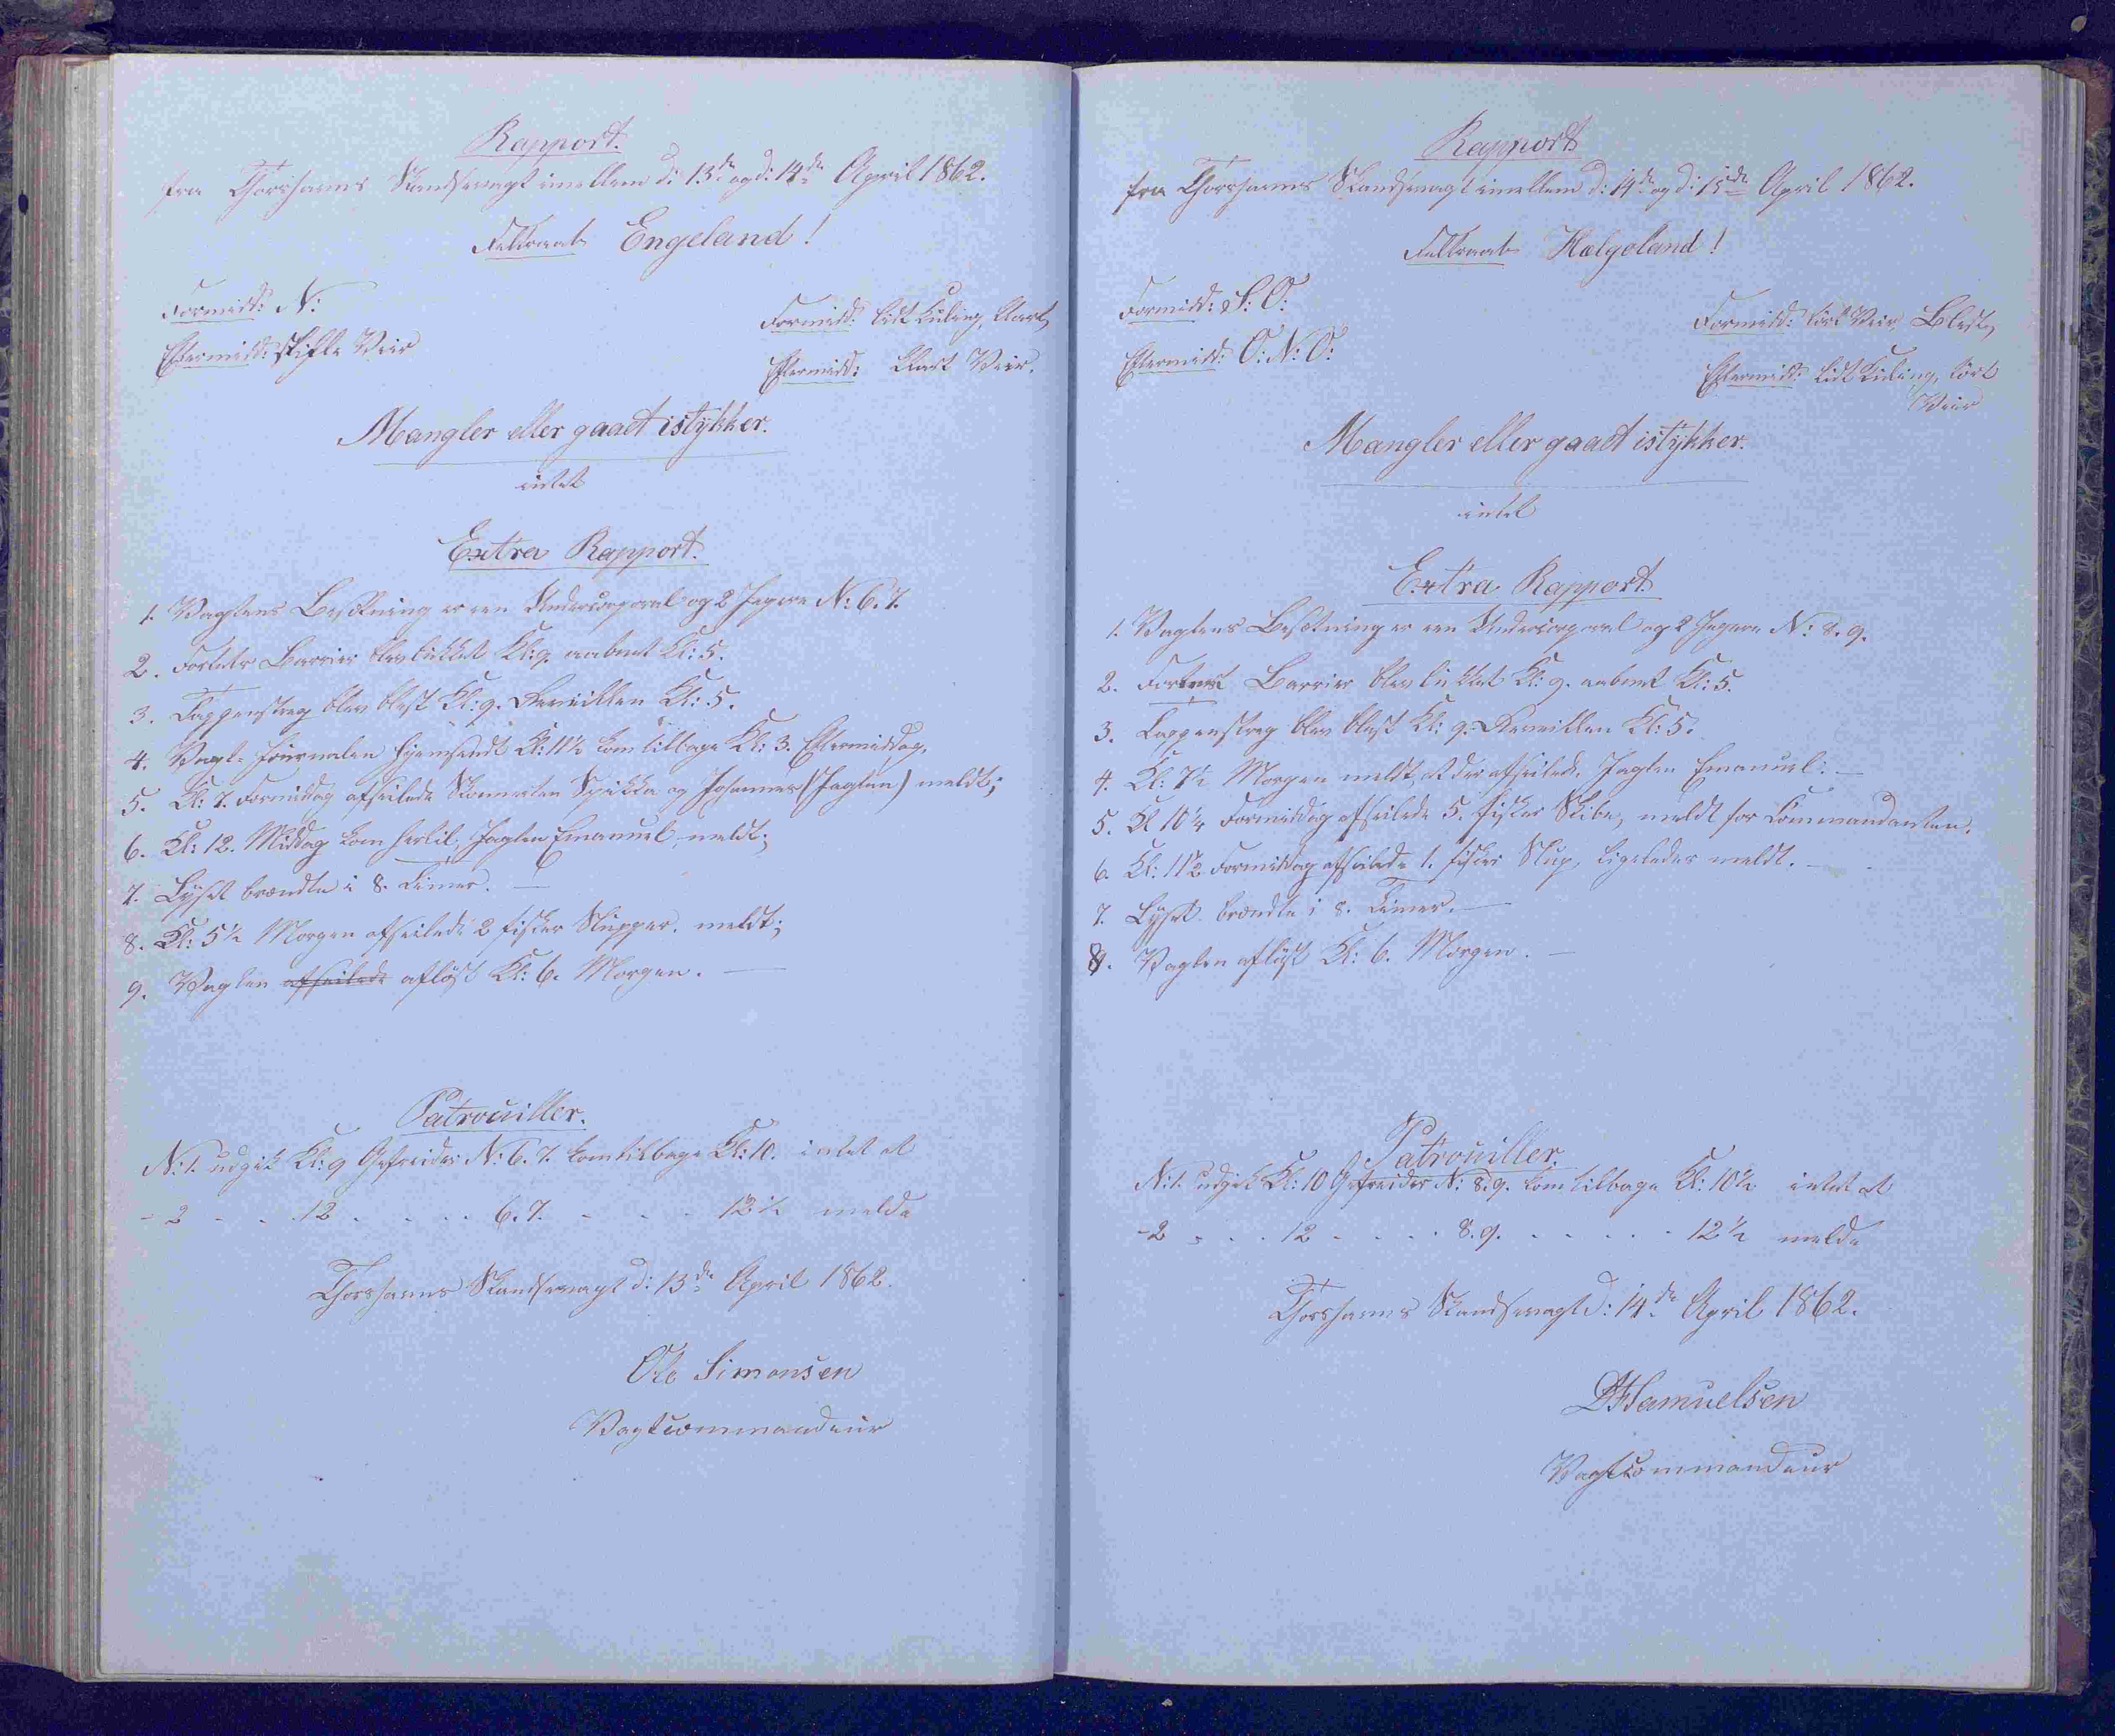 Rapport.
fra Thorshavns Skandsevagt imellem d: 13de og d: 14de April 1862.
Feltraab Engeland!
Formidd: N:
Eftermidd: skifte Veir
Formidd: lidt Kuling, klart,
Eftermidd: klart Veir.
Mangler eller gaaet istÿkker.
intet
Extra Rapport.
1. Vagtens Besætning er een Undercorporal og 2 Jegere N: 6. 7.
2. Fortets Barrier blev lukket Kl: 9. aabnet Kl: 5.
3. Tappenstreg blev blæst Kl: 9. Reveillen Kl: 5.
4. Vagt-Journalen hjemsendt Kl: 11½ kom tilbage Kl: 3. Eftermiddag,
5. Kl: 7. Formiddag afseilede Skonnerten Spikka og Johannes (Jagten) meldt;
6. Kl: 12. Middag kom hertil, Jagten Emanuel, meldt;
7. Lÿset brændte i 8. Timer. —
8. Kl: 5½ Morgen afseilede 2 fisker Slupper. meldt;
9. Vagten afseilede afløst Kl: 6. Morgen. —
Patrouiller.
N: 1. udgik Kl: 9 Gefreider N: 6. 7. kom tilbage Kl: 10. intet at
- 2 - . . 12 . . . . 6. 7. - . . - 12½ melde
Thorshavns Skandsevagt d: 13de April 1862.
Ole Simonsen
Vagtcommandeur
Rapport
fra Thorshavns Skandsevagt imellem d: 14de og d: 15de April 1862.
Feltraab Hælgoland!
Formidd: S: O:
Eftermidd: O: N: O:
Formidd: tørt Veir, Blæst,
Eftermidd: lidt Kuling, tørt
Veir
Mangler eller gaaet istÿkker.
intet
Extra Rapport
1. Vagtens Besætning er een Undercorporal og 2 Jegere N: 8. 9.
2. Fortets Barrier blev lukket Kl: 9. aabnet Kl: 5.
3. Tappenstreg blev blæst Kl: 9. Reveillen Kl: 5.
4. Kl: 7½ Morgen meldt, at der afseilede, Jagten Emanuel. —
5. Kl 10¼ Formiddag afseilede 5. fisker Skibe, meldt for Commandanten.
6. Kl: 11½ Formiddag afseilede 1. fisker Slup, ligeledes meldt. —
7. Lÿset brændte i 8. Timer. —
8. Vagten afløst Kl: 6. Morgen. —
Patrouiller.
N: 1. udgik Kl: 10 Gefreider N: 8. 9. kom tilbage Kl: 10½ intet at
- 2 - . . 12 - . . . 8. 9. . . . . . - 12½ melde
Thorshavns Skandsevagt d: 14de April 1862.
Samuelsen
Vagtcommandeur